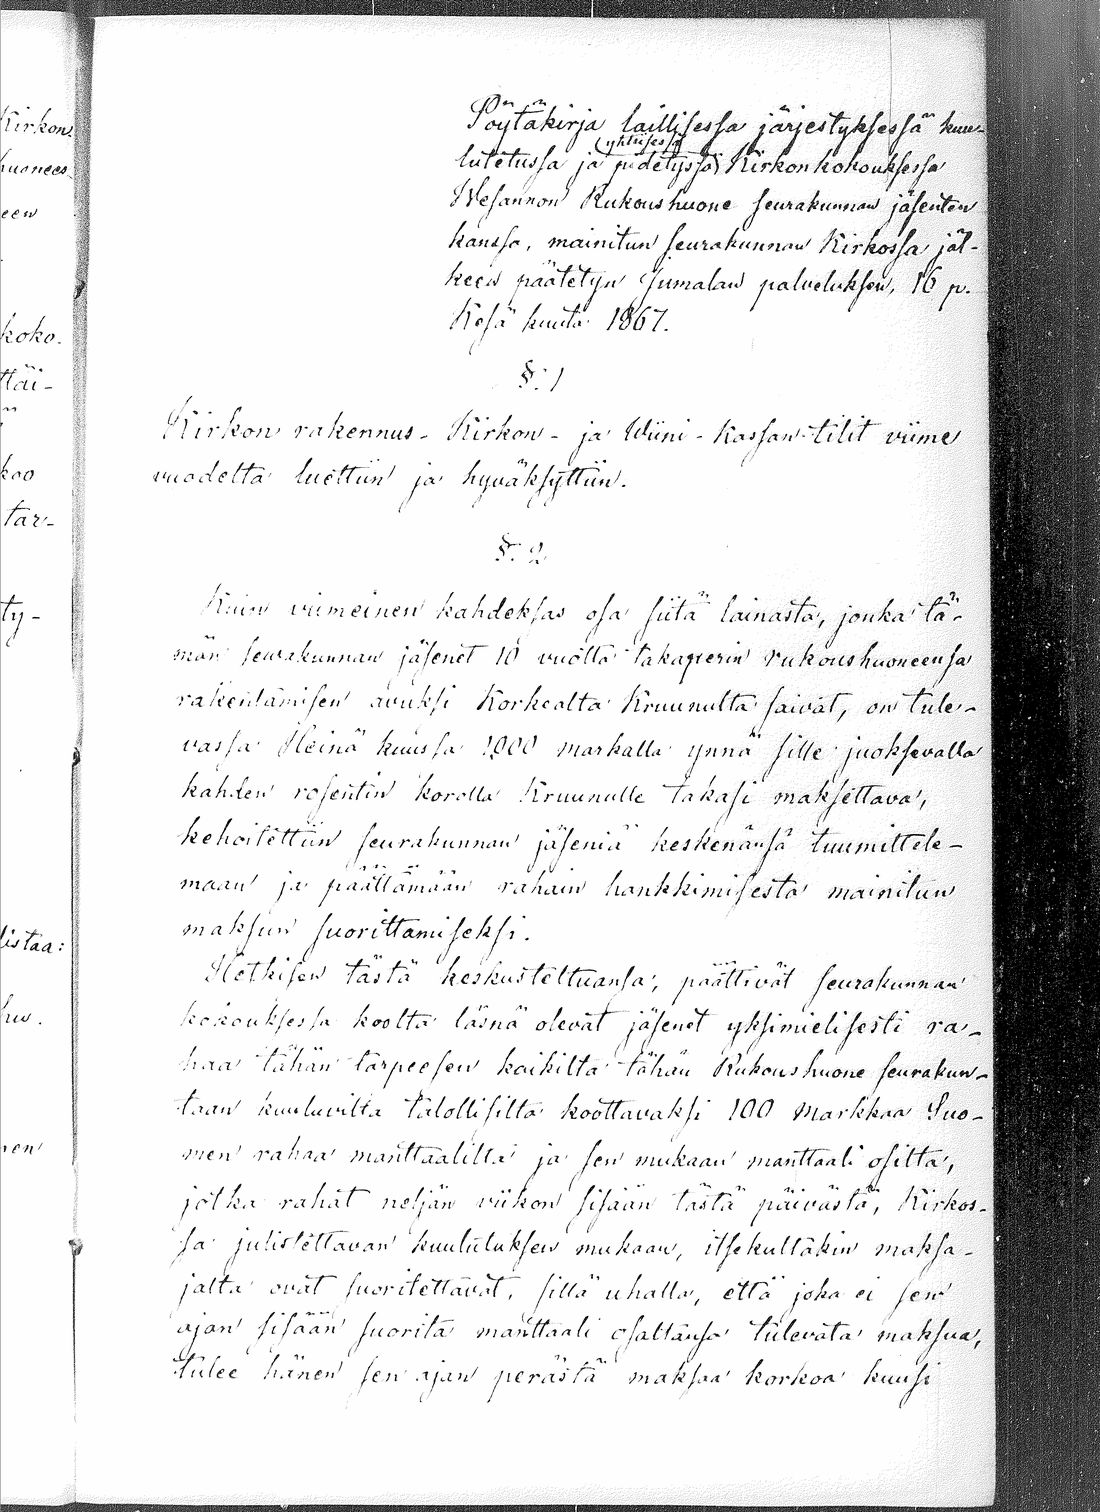 Kirkon
huonees-
een
koko.
ttäi-
koo
tar-
ty-
listaa:
nen
Pöytäkirja laillisessa järjestyksessä kuu-
lutetussa ja (yhteisessä) pidetyssä Kirkonkokouksessa
Wesannon Rukoushuone seurakunnan jäsenten
kanssa, mainitun seurakunnan Kirkossa jäl-
keen päätetyn Jumalan palveluksen, 16 p.
Kesä kuuta 1867.
§. 1
Kirkon rakennus- Kirkon- ja Wiini-Kassan tilit viime
vuodelta luettiin ja hyväksyttiin.
§. 2
Kuin viimeinen kahdeksas osa siitä lainasta, jonka tä-
män seurakunnan jäsenet 10 vuotta takaperin rukoushuoneensa
rakentamisen avuksi Korkealta Kruunulta saivat, on tule-
vassa Heinä kuussa 1000 markalla ynnä sille juoksevalla
kahden rosentin korolla Kruunulle takasi maksettava,
kehoitettiin seurakunnan jäseniä keskenänsä tuumittele-
maan ja päättämään rahain hankkimisesta mainitun
maksun suorittamiseksi.
Hetkisen tästä keskusteltuansa, päättivät seurakunnan
kokouksessa koolta läsnä olevat jäsenet yksimielisesti ra-
haa tähän tarpeesen kaikilta tähän Rukoushuone seurakun-
taan kuuluvilta talollisilta koottavaksi 100 markkaa Suo-
men rahaa manttaalilta ja sen mukaan manttaali osilta,
jotka rahat neljän viikon sisään tästä päivästä, Kirkos-
sa julistettavan kuulutuksen mukaan, itsekultakin maksa-
jalta ovat suoritettavat, sillä uhalla, että joka ei sen
ajan sisään suorita manttaali osaltansa tulevata maksua,
tulee hänen sen ajan perästä maksaa korkoa kuusi